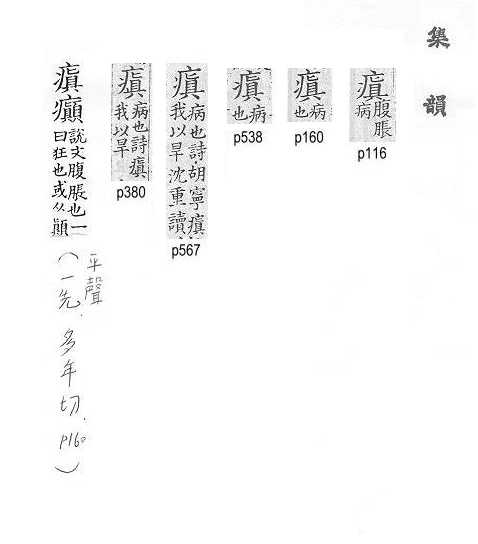 集韻
瘨
腹脹
病
p116
瘨
病
也
p160
瘨
病
也
p538
瘨
病也詩胡寧瘨
我以旱沈重讀
p567
瘨
病也詩瘨
我以旱
p380
瘨癲
說文腹脹也一
曰狂也或从顛
平聲
(一先,多年切,p160)